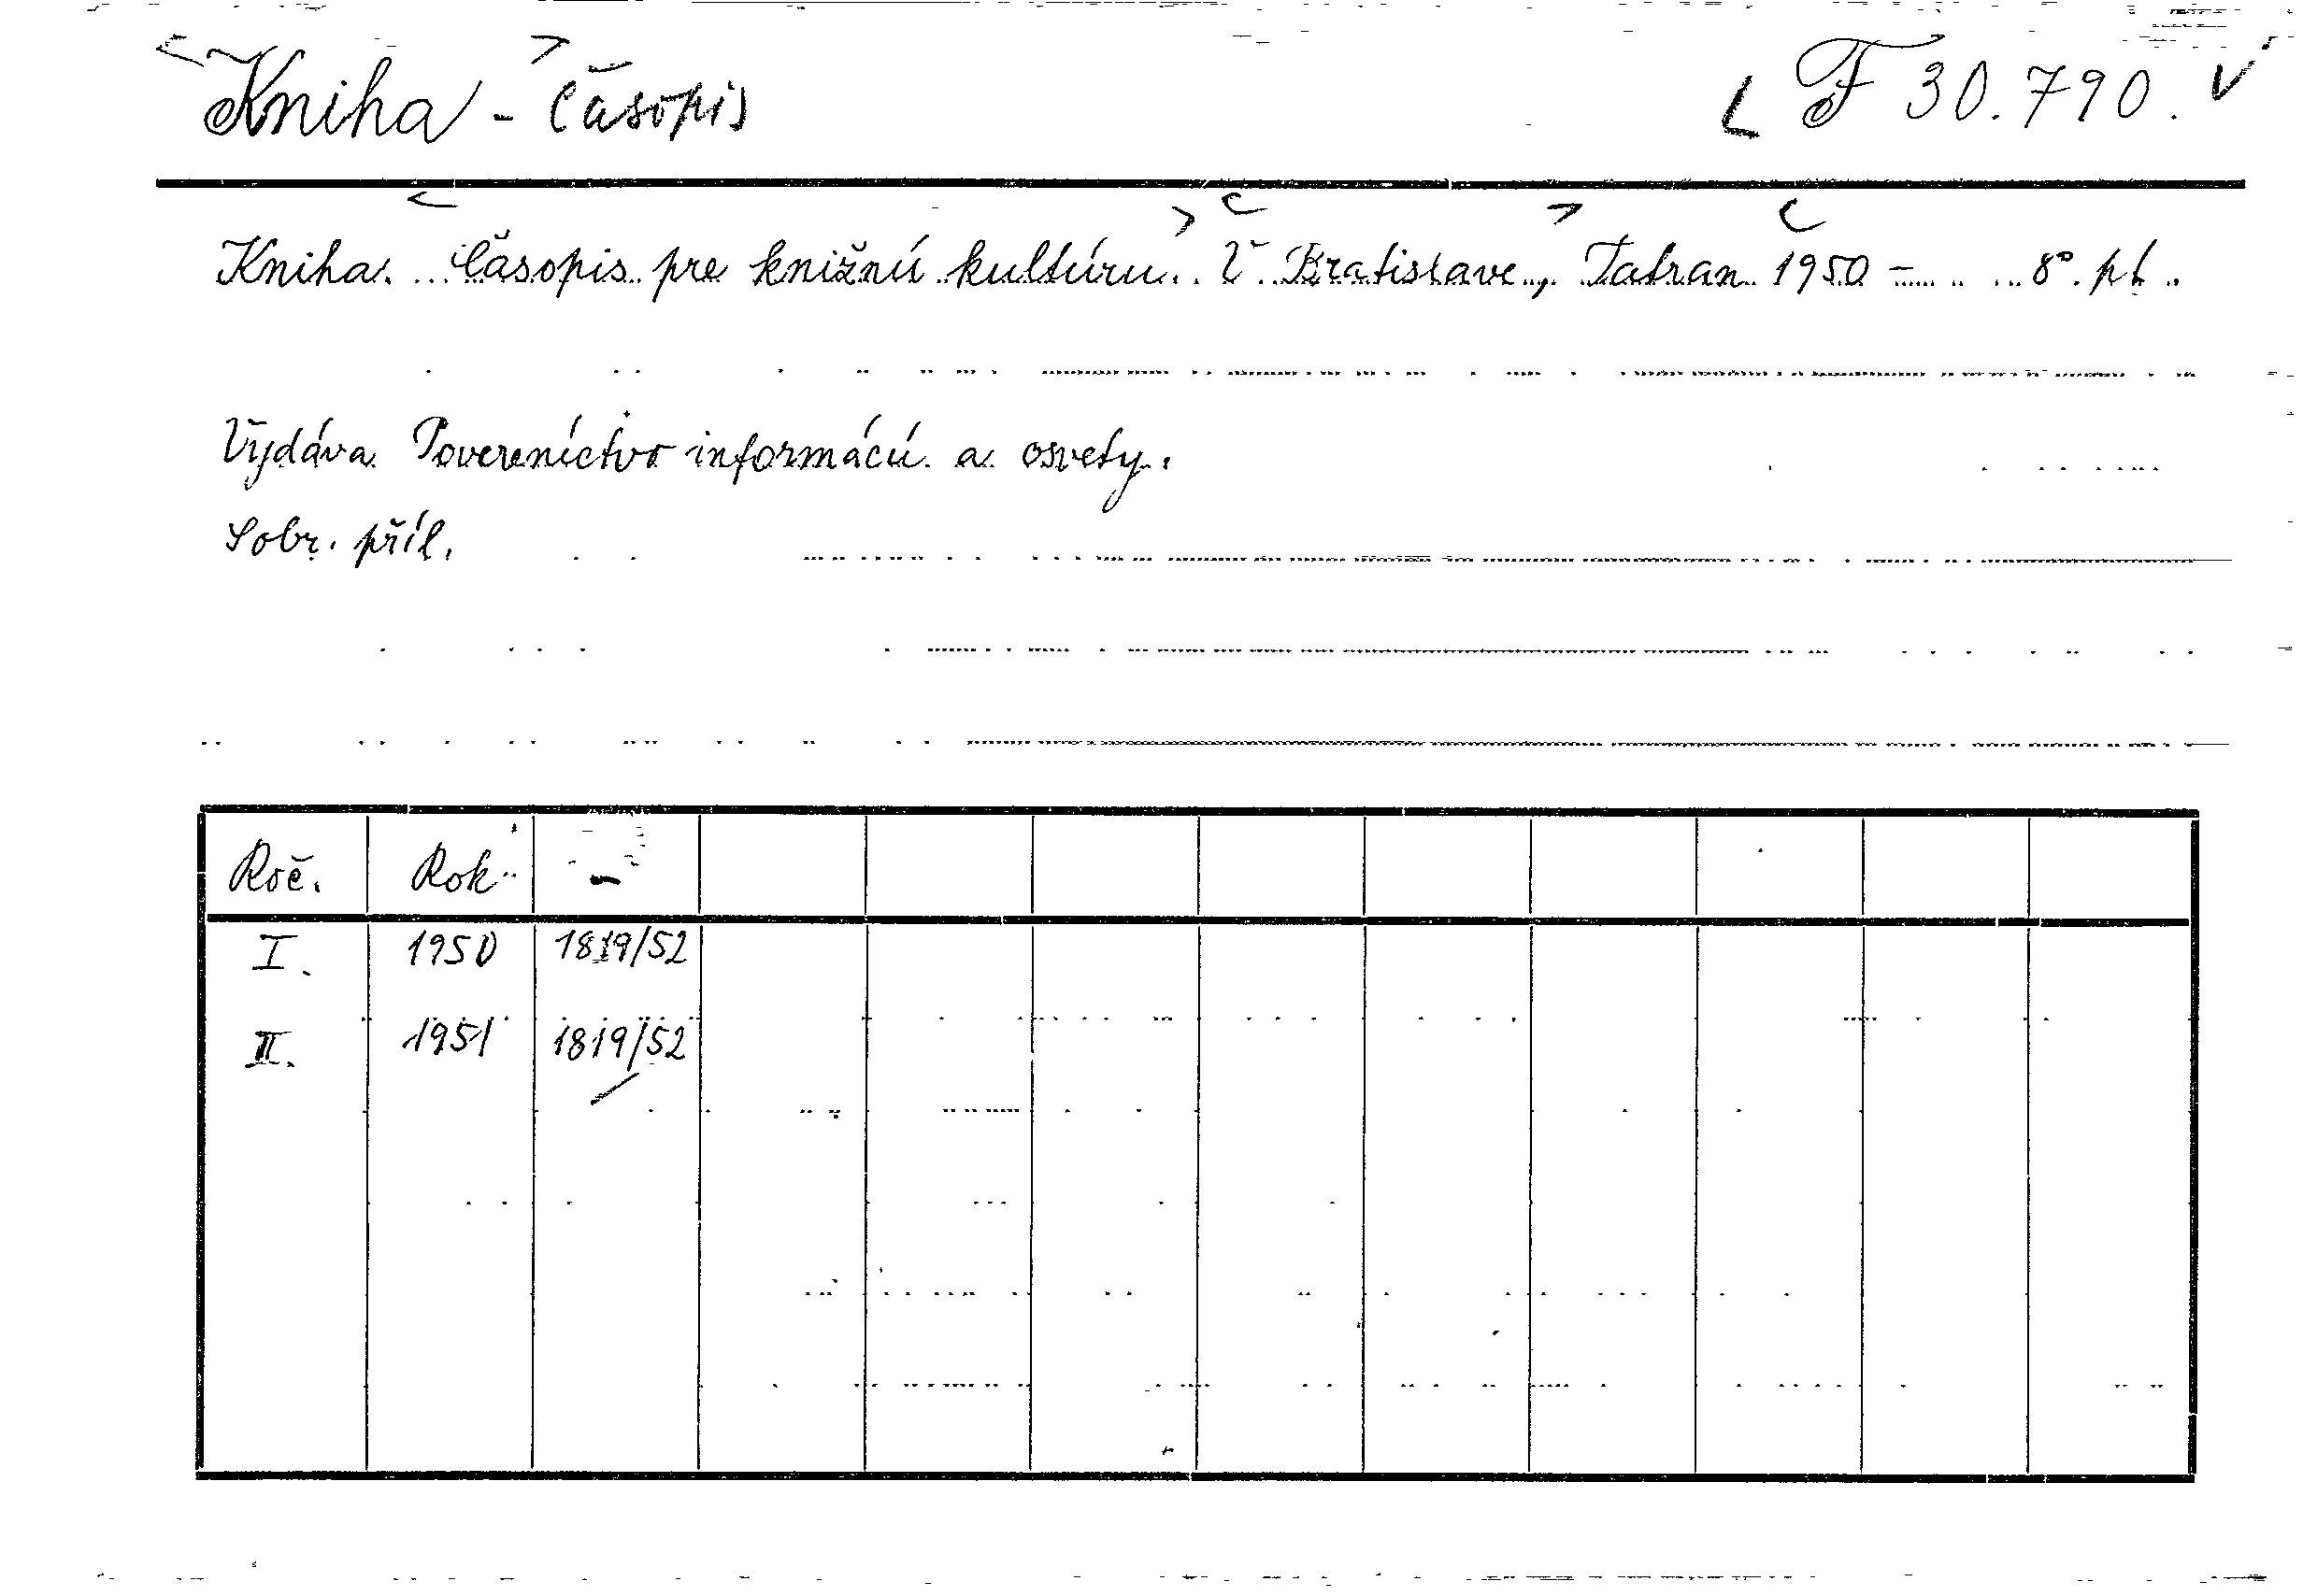 Kniha - Časopis F 30.790.
Kniha. Časopis pre knižnú kultúru. V Bratislave, Tatran 1950 - 8°. pk.
Vydáva Povereníctvo informácií a osvety.
Sobr. příl.
Roč. Rok -
I. 1950 1819/52
II. 1951 1819/52